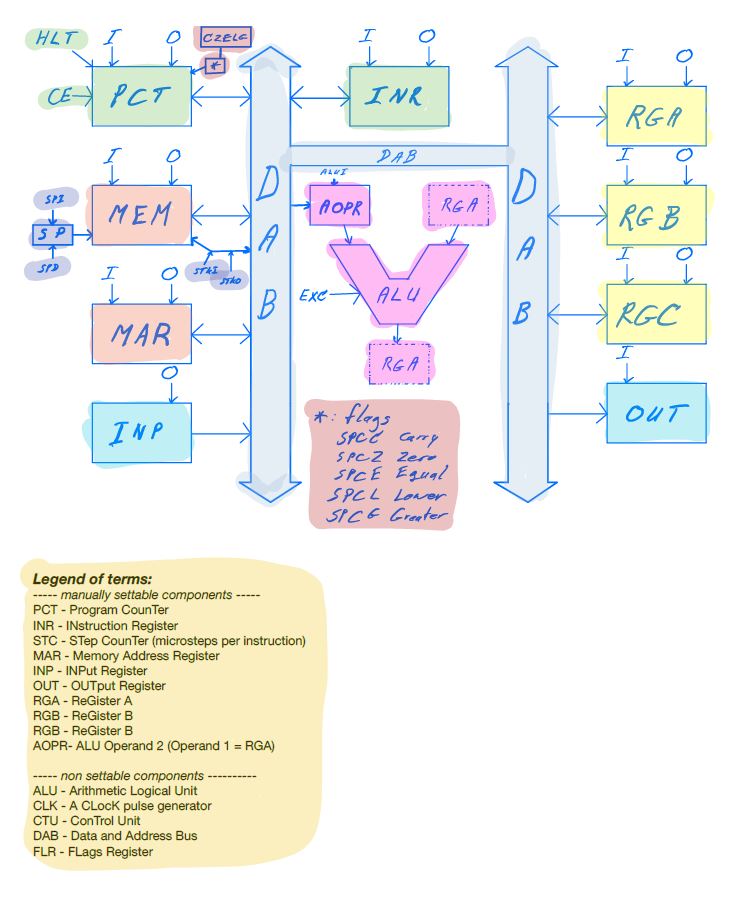 HLT I O CZELG I O
*
CE PCT INR I O
RGA
DAB
I O ALUI I O
SPI MEM D AOPR RGA D RGB
SP
SPD STKI STKO A A I O
I O EXC ALU
MAR B B RGC
O RGA I
INP OUT
*: flags
SPCC Carry
SPCZ Zero
SPCE Equal
SPCL Lower
SPCG Greater
Legend of terms:
----- manually settable components -----
PCT - Program CounTer
INR - INstruction Register
STC - STep CounTer (microsteps per instruction)
MAR - Memory Address Register
INP - INPut Register
OUT - OUTput Register
RGA - ReGister A
RGB - ReGister B
RGB - ReGister B
AOPR- ALU Operand 2 (Operand 1 = RGA)
----- non settable components ----------
ALU - Arithmetic Logical Unit
CLK - A CLocK pulse generator
CTU - ConTrol Unit
DAB - Data and Address Bus
FLR - FLags Register